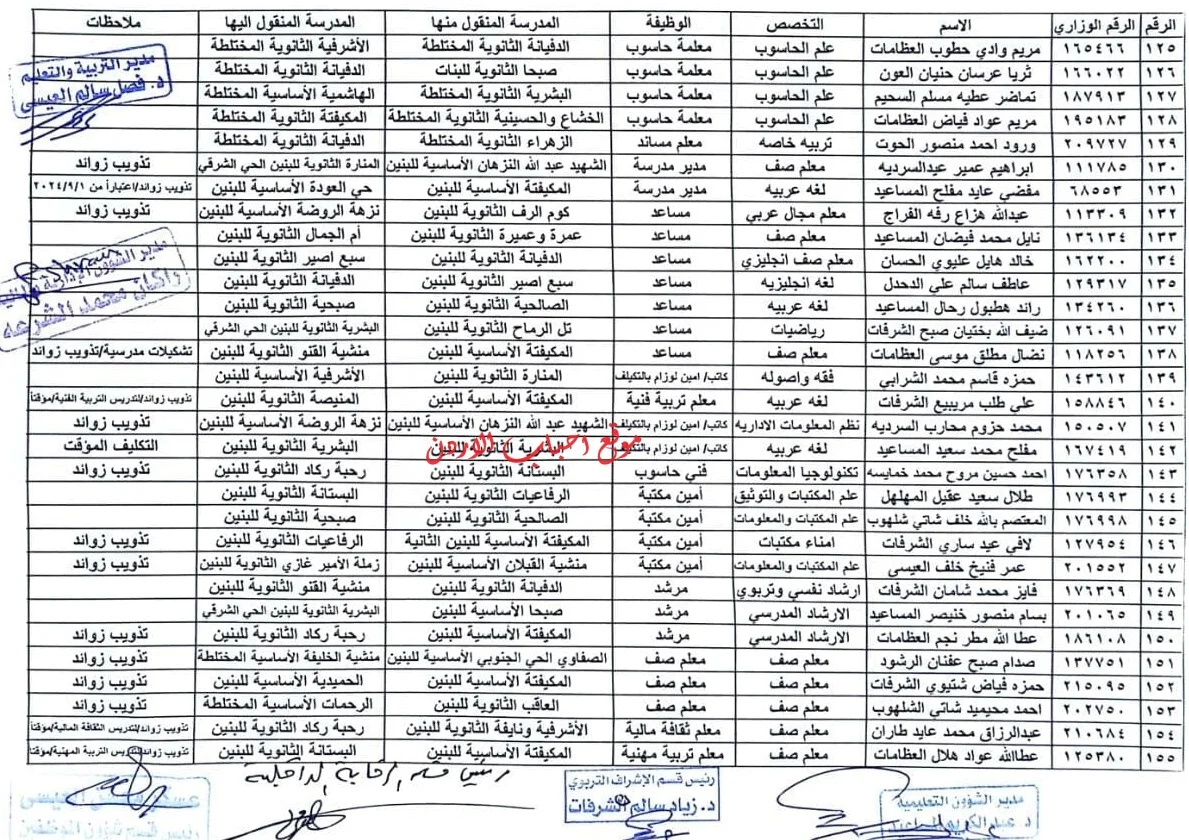 الرقم الرقم الوزاري الاسم التخصص الوظيفة المدرسة المنقول منها المدرسة المنقول اليها ملاحظات
١٢٥ ١٦٥٤٦٦ مريم وادي حطوب العظامات علم الحاسوب معلمة حاسوب الدفيانة الثانوية المختلطة الأشرفية الثانوية المختلطة
١٢٦ ١٦٦٠٢٢ ثريا عرسان حنيان العون علم الحاسوب معلمة حاسوب صبحا الثانوية للبنات الدفيانة الثانوية المختلطة
١٢٧ ١٨٧٩١٣ تماضر عطيه مسلم السحيم علم الحاسوب معلمة حاسوب البشرية الثانوية المختلطة الهاشمية الأساسية المختلطة
١٢٨ ١٩٥١٨٣ مريم عواد فياض العظامات علم الحاسوب معلمة حاسوب الخشاع والحسينية الثانوية المختلطة المكيفتة الثانوية المختلطة
١٢٩ ٢٠٩٧٢٧ ورود احمد منصور الحوت تربيه خاصه معلم مساند الزهراء الثانوية المختلطة الدفيانة الثانوية المختلطة
١٣٠ ١١١٧٨٥ ابراهيم عمير عيدالسرديه معلم صف مدير مدرسة الشهيد عبد الله النزهان الأساسية للبنين المنارة الثانوية للبنين الحي الشرقي تذويب زوائد
١٣١ ٦٨٥٥٣ مفضي عايد مفلح المساعيد لغه عربيه مدير مدرسة المكيفتة الأساسية للبنين حي العودة الأساسية للبنين تذويب زوائد/اعتباراً من ٢٠٢٤/٩/١
١٣٢ ١١٣٣٠٩ عبدالله هزاع رفه الفراج معلم مجال عربي مساعد كوم الرف الثانوية للبنين نزهة الروضة الأساسية للبنين تذويب زوائد
١٣٣ ١٣٦١٣٤ نايل محمد فيضان المساعيد معلم صف مساعد عمرة وعميرة الثانوية للبنين أم الجمال الثانوية للبنين
١٣٤ ١٦٢٢٠٠ خالد هايل عليوي الحسان معلم صف انجليزي مساعد الدفيانة الثانوية للبنين سبع اصير الثانوية للبنين
١٣٥ ١٢٩٣١٧ عاطف سالم علي الدحدل لغه انجليزيه مساعد سبع اصير الثانوية للبنين الدفيانة الثانوية للبنين
١٣٦ ١٣٤٢٦٠ رائد هطبول رحال المساعيد لغه عربيه مساعد الصالحية الثانوية للبنين صبحية الثانوية للبنين
١٣٧ ١٢٦٠٩١ ضيف الله بختيان صبح الشرفات رياضيات مساعد تل الرماح الثانوية للبنين البشرية الثانوية للبنين الحي الشرقي
١٣٨ ١١٨٢٥٦ نضال مطلق موسى العظامات معلم صف مساعد المكيفتة الأساسية للبنين منشية القنو الثانوية للبنين تشكيلات مدرسية/تذويب زوائد
١٣٩ ١٤٣٦١٢ حمزه قاسم محمد الشرابي فقه واصوله كاتب/ امين لوزام بالتكليف المنارة الثانوية للبنين الأشرفية الثانوية للبنين
١٤٠ ١٥٨٨٤٦ علي طلب مريبيع الشرفات لغه عربيه معلم تربية فنية المكيفتة الأساسية للبنين المنيصة الثانوية للبنين تذويب زوائد/لتدريس التربية الفنية/مؤقتاً
١٤١ ١٥٠٥٠٧ محمد حزوم محارب السرديه نظم المعلومات الاداريه كاتب/ امين لوزام بالتكليف الشهيد عبد الله النزهان الأساسية للبنين نزهة الروضة الأساسية للبنين تذويب زوائد
١٤٢ ١٦٧٤١٩ مفلح محمد سعيد المساعيد لغه عربيه كاتب/ امين لوزام بالتكليف البشرية الثانوية للبنين البشرية الثانوية للبنين التكليف المؤقت
موقع احباب الاردن
١٤٣ ١٧٦٣٥٨ احمد حسين مروح محمد خمايسه تكنولوجيا المعلومات فني حاسوب البستانة الثانوية للبنين رحبة ركاد الثانوية للبنين تذويب زوائد
١٤٤ ١٧٦٩٩٣ طلال سعيد عقيل المهلهل علم المكتبات والتوثيق أمين مكتبة الرفاعيات الثانوية للبنين البستانة الثانوية للبنين
١٤٥ ١٧٦٩٩٨ المعتصم بالله خلف شاتي شلهوب علم المكتبات والمعلومات أمين مكتبة الصالحية الثانوية للبنين صبحية الثانوية للبنين
١٤٦ ١٢٧٩٥٤ لافي عيد ساري الشرفات امناء مكتبات أمين مكتبة المكيفتة الأساسية للبنين الثانية الرفاعيات الثانوية للبنين تذويب زوائد
١٤٧ ٢٠١٥٥٢ عمر فنيخ خلف العيسى علم المكتبات والمعلومات أمين مكتبة منشية القبلان الأساسية للبنين زملة الأمير غازي الثانوية للبنين تذويب زوائد
١٤٨ ١٧٦٣٦٩ فايز محمد شامان الشرفات ارشاد نفسي وتربوي مرشد الدفيانة الثانوية للبنين منشية القنو الثانوية للبنين
١٤٩ ٢٠١٠٦٥ بسام منصور خنيصر المساعيد الارشاد المدرسي مرشد صبحا الأساسية للبنين البشرية الثانوية للبنين الحي الشرقي
١٥٠ ١٨٦١٠٨ عطا الله مطر نجم العظامات الارشاد المدرسي مرشد المكيفتة الأساسية للبنين رحبة ركاد الثانوية للبنين تذويب زوائد
١٥١ ١٣٧٧٥١ صدام صبح عفنان الرشود معلم صف معلم صف الصفاوي الحي الجنوبي الأساسية للبنين منشية الخليفة الأساسية المختلطة تذويب زوائد
١٥٢ ٢١٥٠٩٥ حمزه فياض شتيوي الشرفات معلم صف معلم صف المكيفتة الأساسية للبنين الحميدية الأساسية للبنين تذويب زوائد
١٥٣ ٢٠٢٧٥٠ احمد محيميد شاتي الشلهوب معلم صف معلم صف العاقب الثانوية للبنين الرحمات الأساسية المختلطة تذويب زوائد
١٥٤ ٢١٠٦٨٤ عبدالرزاق محمد عايد طاران معلم صف معلم ثقافة مالية الأشرفية ونايفة الثانوية للبنين رحبة ركاد الثانوية للبنين تذويب زوائد/لتدريس الثقافة المالية/مؤقتاً
١٥٥ ١٢٥٣٨٠ عطاالله عواد هلال العظامات معلم صف معلم تربية مهنية المكيفتة الأساسية للبنين البستانة الثانوية للبنين تذويب زوائد/لتدريس التربية المهنية/مؤقتاً
مدير التربية والتعليم
د. فصل سالم العيسى
مدير الشؤون الإدارية
راكان محمد الشرعه
مدير الشؤون التعليمية
د عبد الكريم
رئيس قسم الإشراف التربوي
د. زياد سالم الشرفات
رئيس قسم الرقابة الداخلية
العيسى
رئيس قسم شؤون الموظفين